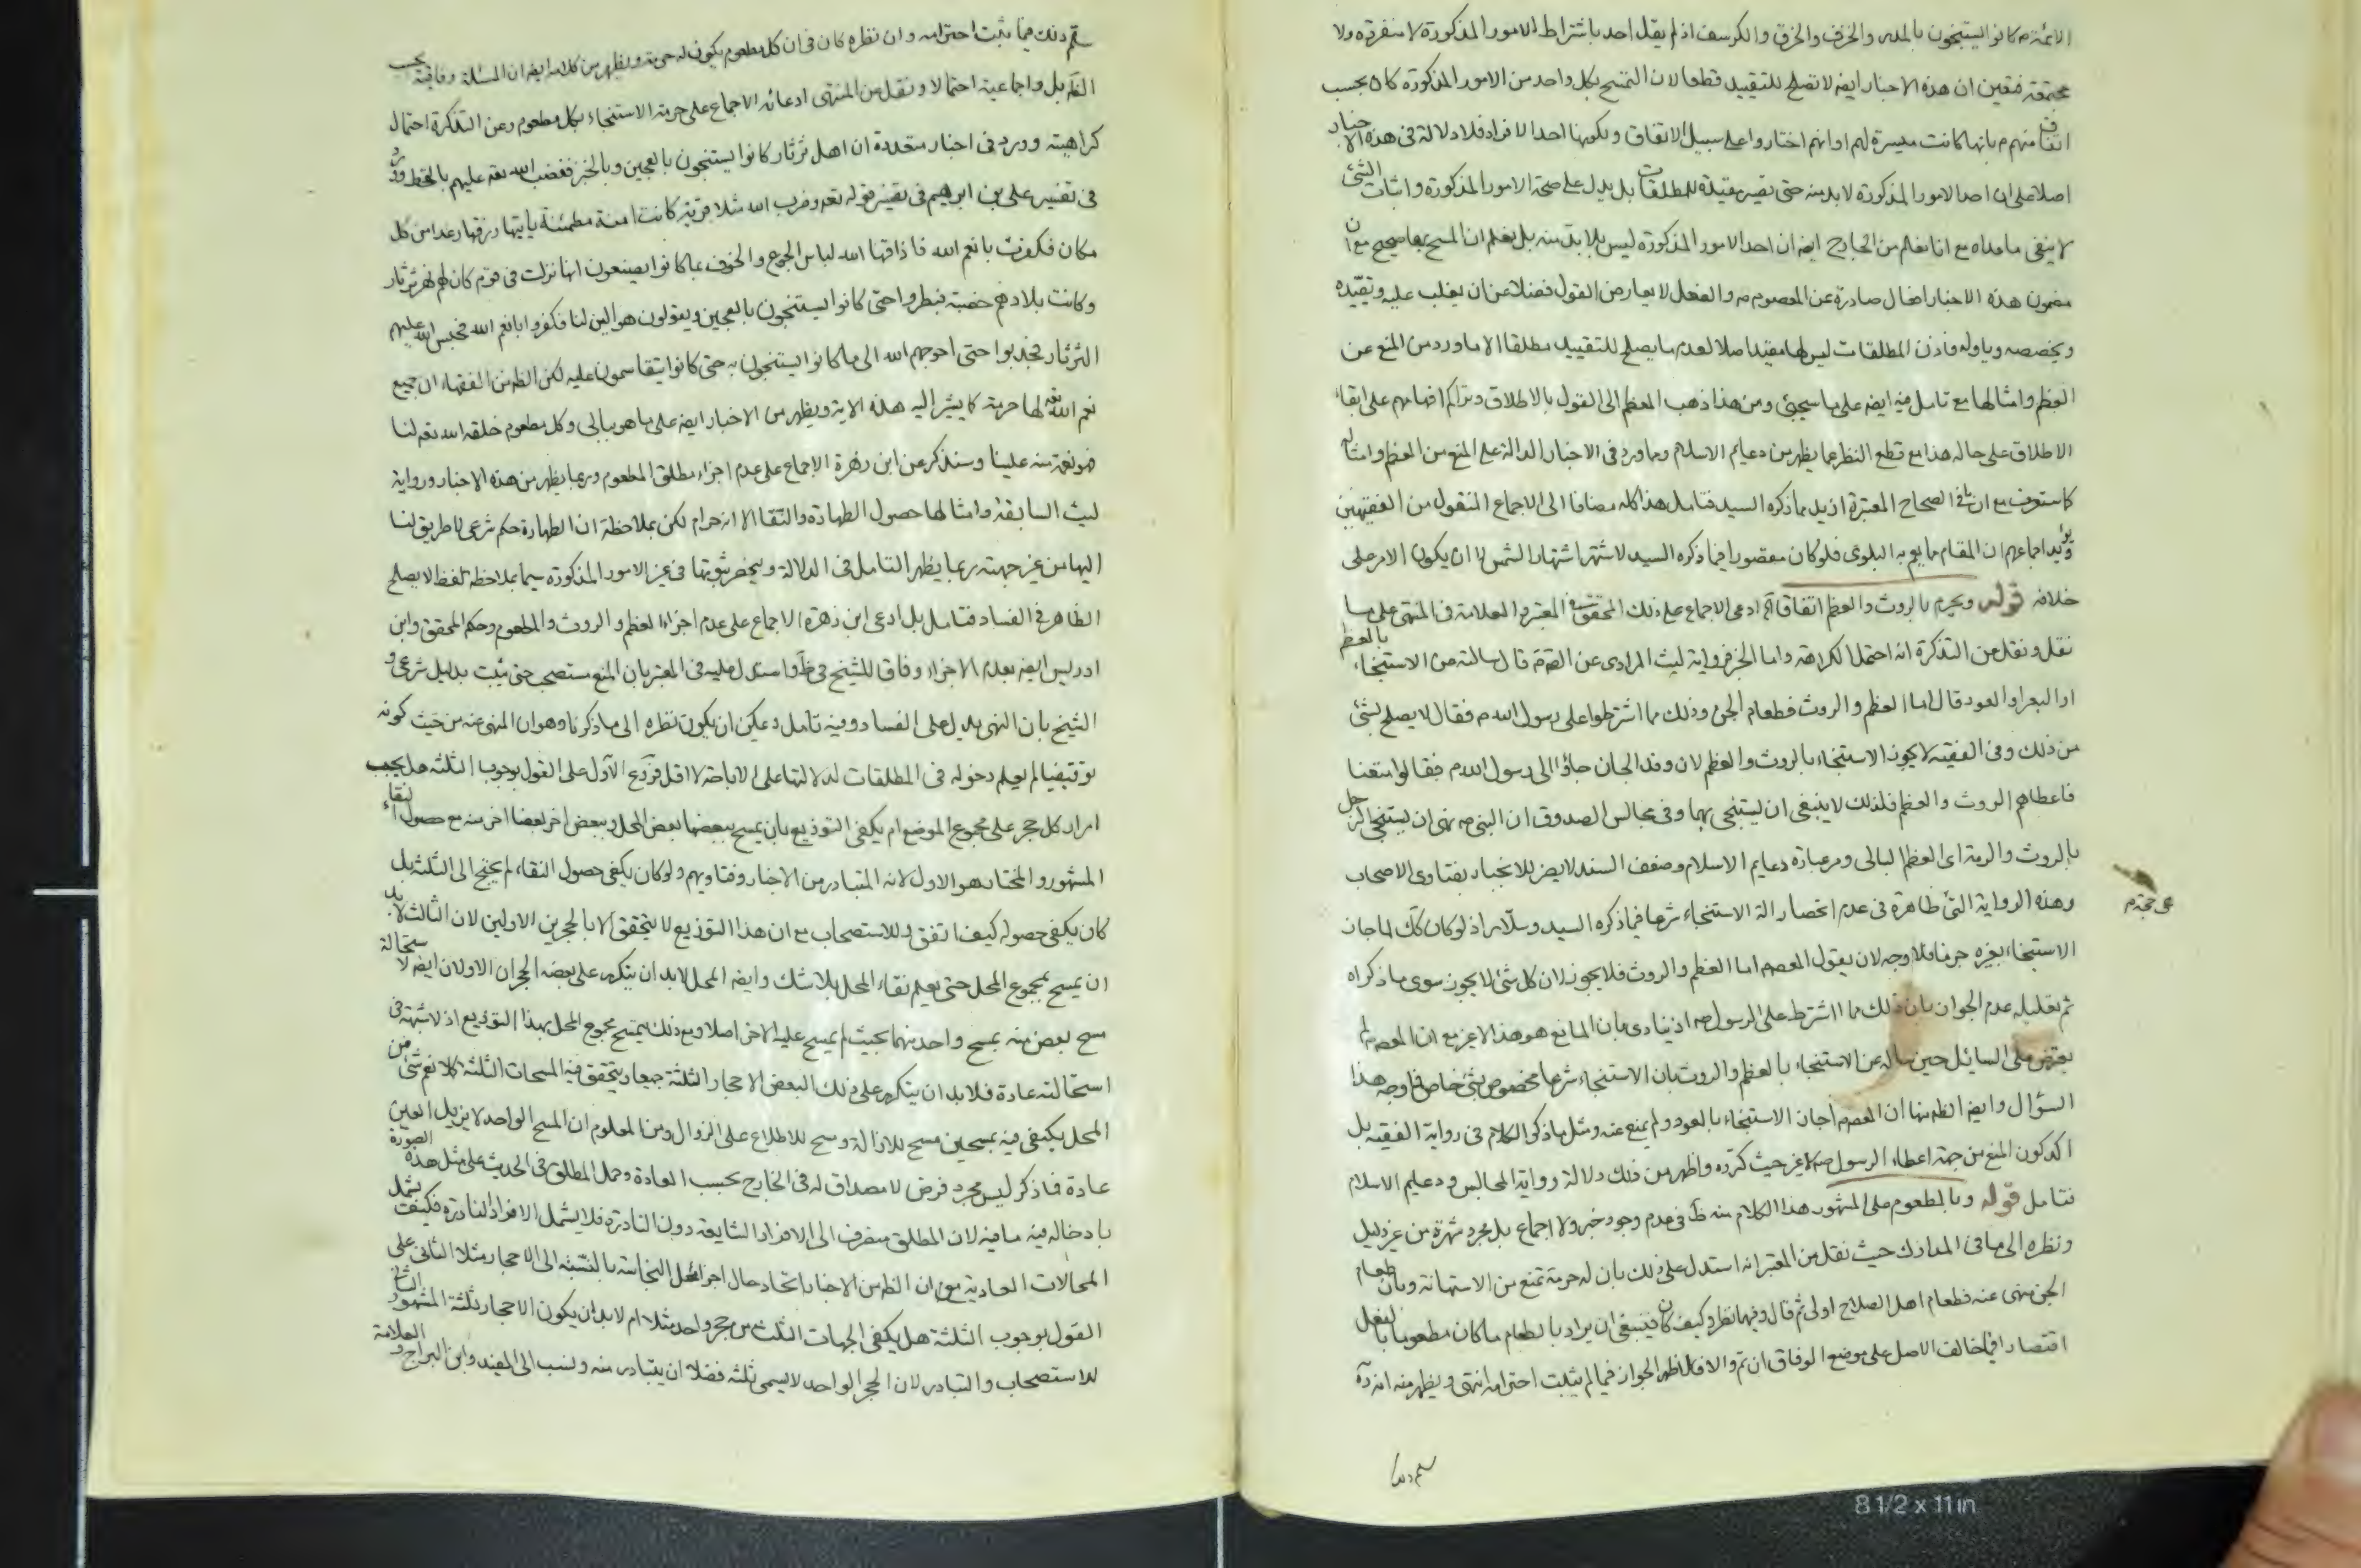 الائمة ع كانوا يستنجون بالمدر والخزف والخرق والكرسف اذ لم يقل احد باشتراط الامور المذكورة لا منفردة ولا
مجتمعة فتعين ان هذه الاخبار ايضه لا تصلح للتقييد قطعا لان التمسح بكل واحد من الامور المذكورة كان بحسب
اتفاق منهم ع بانها كانت ميسرة لهم او انهم اختاروا على سبيل الاتفاق ولكونها احد الافراد فلا دلالة فى هذه الاخبار
اصلا على ان احد الامور المذكورة لا بد منه حتى تصير مقيدة للمطلقات بل يدل على صحة الامور المذكورة واثبات الشئ
لا ينفى ما عداه مع انا نعلم من الخارج ايضه ان احد الامور المذكورة ليس بلا بد منه بل نعلم ان المسح بها صحيح مع ان
مضمون هذه الاخبار افعال صادرة عن المعصوم ع والفعل لا يعارض القول فضلا عن ان يغلب عليه ويقيّده
ويخصصه وياوله فاذن المطلقات ليس لها مقيد اصلا لعدم ما يصلح للتقييد مطلقا الا ما ورد من المنع عن
العظم وامثالها مع تامل فيه ايضه على ما سيجئ ومن هذا ذهب المعظم الى القول بالاطلاق وتراكم افهامهم على ابقاء
الاطلاق على حاله هذا مع قطع النظر عما يظهر من دعايم الاسلام وما ورد فى الاخبار الدالة على المنع من العظم وامثاله
كما ستعرف مع ان فى الصحاح المعتبرة ازيد مما ذكره السيد فتامل هذا كله مضافا الى الاجماع المنقول من الفقيهين
ويؤيد اجماعهم ان المقام مما يعم به البلوى فلو كان مقصورا فيما ذكره السيد لاشتهر اشتهار الشمس لا ان يكون الامر على
خلافه قوله ويحرم بالروث والعظم اتفاقا آه ادعى الاجماع على ذلك المحقق فى المعتبر والعلامة فى المنتهى على ما
نقل ونقل من التذكرة انه احتمل الكراهة واما الخبر فرواية ليث المرادى عن الصم قال سالته من الاستنجاء بالعظم
او البعر او العود قال اما العظم والروث فطعام الجن وذلك مما اشترطوا على رسول الله ص فقال لا يصلح بشئ
من ذلك وفى الفقيه لا يجوز الاستنجاء بالروث والعظم لان وفد الجان جاؤا الى رسول الله ص فقالوا متعنا
فاعطاهم الروث والعظم فلذلك لا ينبغى ان يستنجى بهما وفى مجالس الصدوق ان النبى ص نهى ان يستنجى الرجل
بالروث والرمة اى العظم البالى ومر عبارة دعايم الاسلام وضعف السند لا يضر للانجبار بفتاوى الاصحاب
وهذه الرواية التى ظاهرة فى عدم انحصار الة الاستنجاء شرعا فيما ذكره السيد وسلّار اذ لو كان كك لما جاز
الاستنجاء بغيره جزما فلا وجه لان يقول المعصم اما العظم والروث فلا يجوز لان كل شئ لا يجوز سوى ما ذكراه
ثم تعليله عدم الجواز بان ذلك مما اشترط على الرسول ص اذ ينادى بان المانع هو هذا لا غير مع ان المعصم لم
يعترض على السائل حين ساله عن الاستنجاء بالعظم والروث بان الاستنجاء شرعا مخصوص بشئ خاص فما وجه هذا
السؤال وايضه الظم منها ان المعصم اجاز الاستنجاء بالعود ولم يمنع عنه ومثل ما ذكر الكلام فى رواية الفقيه بل
اكد كون المنع من جهة اعطاء الرسول ص لا غير حيث كرّره واظهر من ذلك دلالة رواية المجالس ودعايم الاسلام
فتامل قوله وبالمطعوم على المشهور هذا الكلام منه ظ فى عدم وجود خبر ولا اجماع بل مجرد شهرة من غير دليل
ونظره الى ما فى المدارك حيث نقل من المعتبر انه استدل على ذلك بان له حرمة تمنع من الاستهانة وبان طعام
الجن منهى عنه فطعام اهل الصلاح اولى ثم قال وفيهما نظر وكيف كان فينبغى ان يراد بالطعام ما كان مطعوما بالفعل
اقتصارا فيما خالف الاصل على موضع الوفاق ان تم والا فالظهر الجواز فيما لم يثبت احترامه انتهى ويظهر منه انه رآه
سلم ذلك
عن حجة م
سلم ذلك فيما يثبت احترامه وان نظره كان فى ان كل مطعوم يكون له حرمة ويظهر من كلامه ايضه ان المسئلة وفاقية بحسب
الظم بل واجماعية احتمالا ونقل من المنتهى ادعائه الاجماع على حرمة الاستنجاء بكل مطعوم وعن التذكرة احتمال
كراهيته وورد فى اخبار متعددة ان اهل ثرثار كانوا يستنجون بالعجين وبالخبز فغضب الله تعه عليهم بالقحط وورد
فى تفسير على بن ابرهيم فى تفسير قوله تعه وضرب الله مثلا قرية كانت امنة مطمئنة ياتيها رزقها رغدا من كل
مكان فكفرت بانعم الله فاذاقها الله لباس الجوع والخوف بما كانوا يصنعون انها نزلت فى قوم كان لهم نهر ثرثار
وكانت بلادهم خصبة فبطروا حتى كانوا يستنجون بالعجين ويقولون هو الين لنا فكفروا بانعم الله فحبس الله عليهم
الثرثار فجدبوا حتى احوجهم الله الى ما كانوا يستنجون به حتى كانوا يتقاسمون عليه لكن الظم من الفقهاء ان جميع
نعم الله تعه لها حرمة كما يشير اليه هذه الاية ويظهر من الاخبار ايضه على ما هو ببالى وكل مطعوم خلقه الله تعه لنا
فهو نعمة منه علينا وسنذكر عن ابن زهرة الاجماع على عدم اجزاء مطلق المطعوم وربما يظهر من هذه الاخبار ورواية
ليث السابقة وامثالها حصول الطهارة والنقا الا انه حرام لكن بملاحظة ان الطهارة حكم شرعى لا طريق لنا
اليها من غير جهته ربما يظهر التامل فى الدلالة وينحصر ثبوتها فى غير الامور المذكورة سيما بملاحظة لفظ لا يصلح
الظاهر فى الفساد فتامل بل ادعى ابن زهرة الاجماع على عدم اجزاء العظم والروث والمطعوم وحكم المحقق وابن
ادريس ايضه بعدم الاجزاء وفاقا للشيخ فى ط واستدل عليه فى المعتبر بان المنع مستصحب حتى يثبت بدليل شرعى و
الشيخ بان النهى يدل على الفساد وفيه تامل ويمكن ان يكون نظره الى ما ذكرنا وهو ان المنهى عنه من حيث كونه
توقيفيا لم يعلم دخوله فى المطلقات لدلالتها على الاباحة لا اقل فروع الاول على القول بوجوب الثلثة هل يجب
امرار كل حجر على مجموع الموضع ام يكفى التوزيع بان يمسح ببعضها بعض المحل وببعض اخر بعضا اخر منه مع حصول النقاء
المشهور والمختار هو الاول لانه المتبادر من الاخبار وفتاويهم ولو كان يكفى حصول النقاء لم يحتج الى الثلثة بل
كان يكفى حصوله كيف اتفق وللاستصحاب مع ان هذا التوزيع لا يتحقق الا بالحجرين الاولين لان الثالث لا بد
ان يمسح بمجموع المحل حتى يعلم نقاء المحل بلا شك وايضه المحل لا بد ان يتكرر على بعضه الحجران الاولان ايضه لاستحالة
مسح بعض منه بمسح واحد منهما بحيث لم يمسح عليه الاخر اصلا ومع ذلك يمسح مجموع المحل بهذا التوزيع اذ لا شبهة فى
استحالته عادة فلا بد ان يتكرر على ذلك البعض الاحجار الثلثة جميعا ويتحقق فيه المسحات الثلثة كلا نعم شئ من
المحل يكتفى فيه بمسحين مسح للازالة ومسح للاطلاع على الزوال ومن المعلوم ان المسح الواحد لا يزيل العين
عادة فما ذكر ليس مجرد فرض لا مصداق له فى الخارج بحسب العادة وحمل المطلق فى الحديث على مثل هذه الصورة
بادخاله فيه ما فيه لان المطلق منصرف الى الافراد الشايعة دون النادرة فلا يشمل الافراد النادرة فكيف يشمل
المحالات العادية مع ان الظم من الاخبار اتحاد حال اجزاء محل النجاسة بالنسبة الى الاحجار مثلا الثانى على
القول بوجوب الثلثة هل يكفى الجهات الثلث من حجر واحد مثلا ام لا بد ان يكون الاحجار ثلثة المشهور الثانى
للاستصحاب والتبادر لان الحجر الواحد لا يسمى ثلثة فضلا ان يتبادر منه ونسب الى المفيد وابن البراج والعلامة
8 1/2 x 11 in